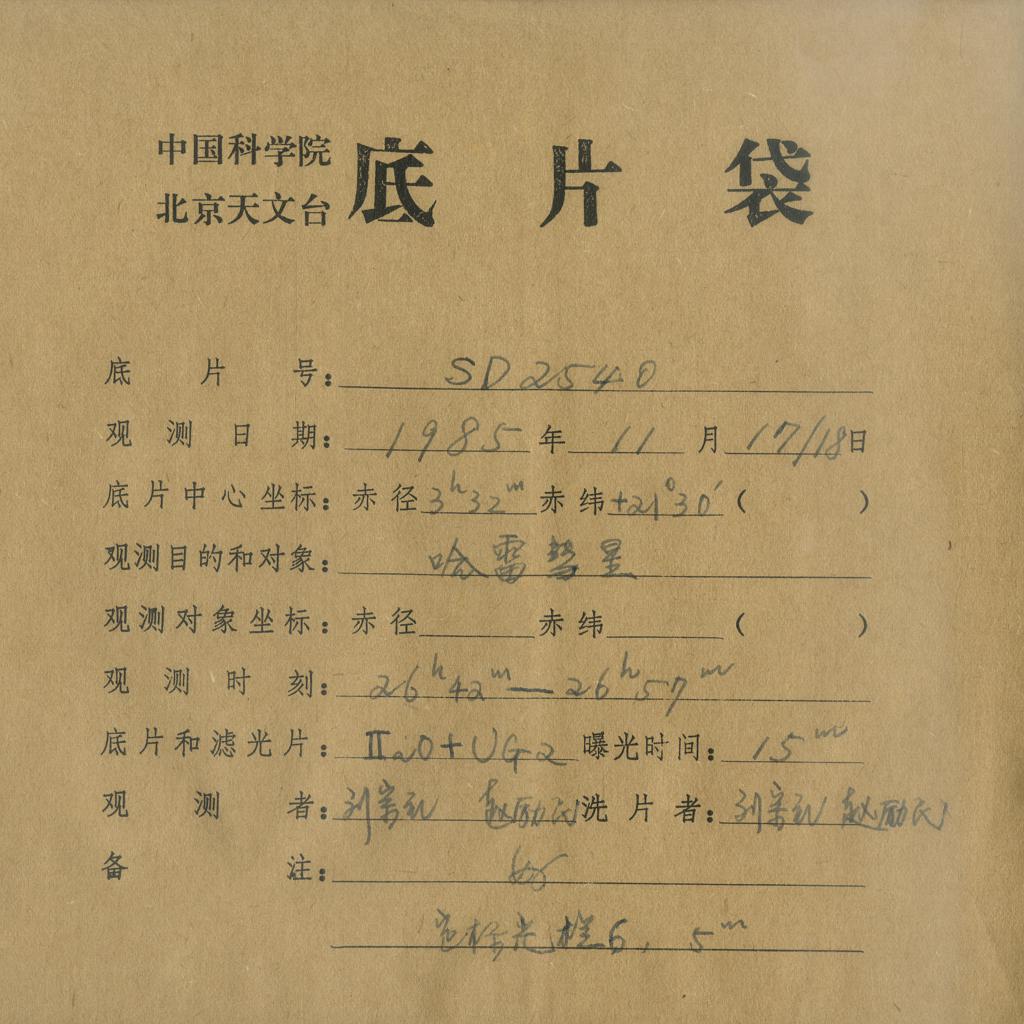 中国科学院
北京天文台
底片袋
底片号：SD2540
观测日期：1985年11月17/18日
底片中心坐标：赤径3h32m赤纬+21°30′（ ）
观测目的和对象：哈雷彗星
观测对象坐标：赤径 赤纬 （ ）
观测时刻：26h42m—26h57m
底片和滤光片：ⅡaO+UG2 曝光时间：15m
观测者：刘宗礼 赵励民 洗片者：刘宗礼 赵励民
备注：好
定标光楔6，5m